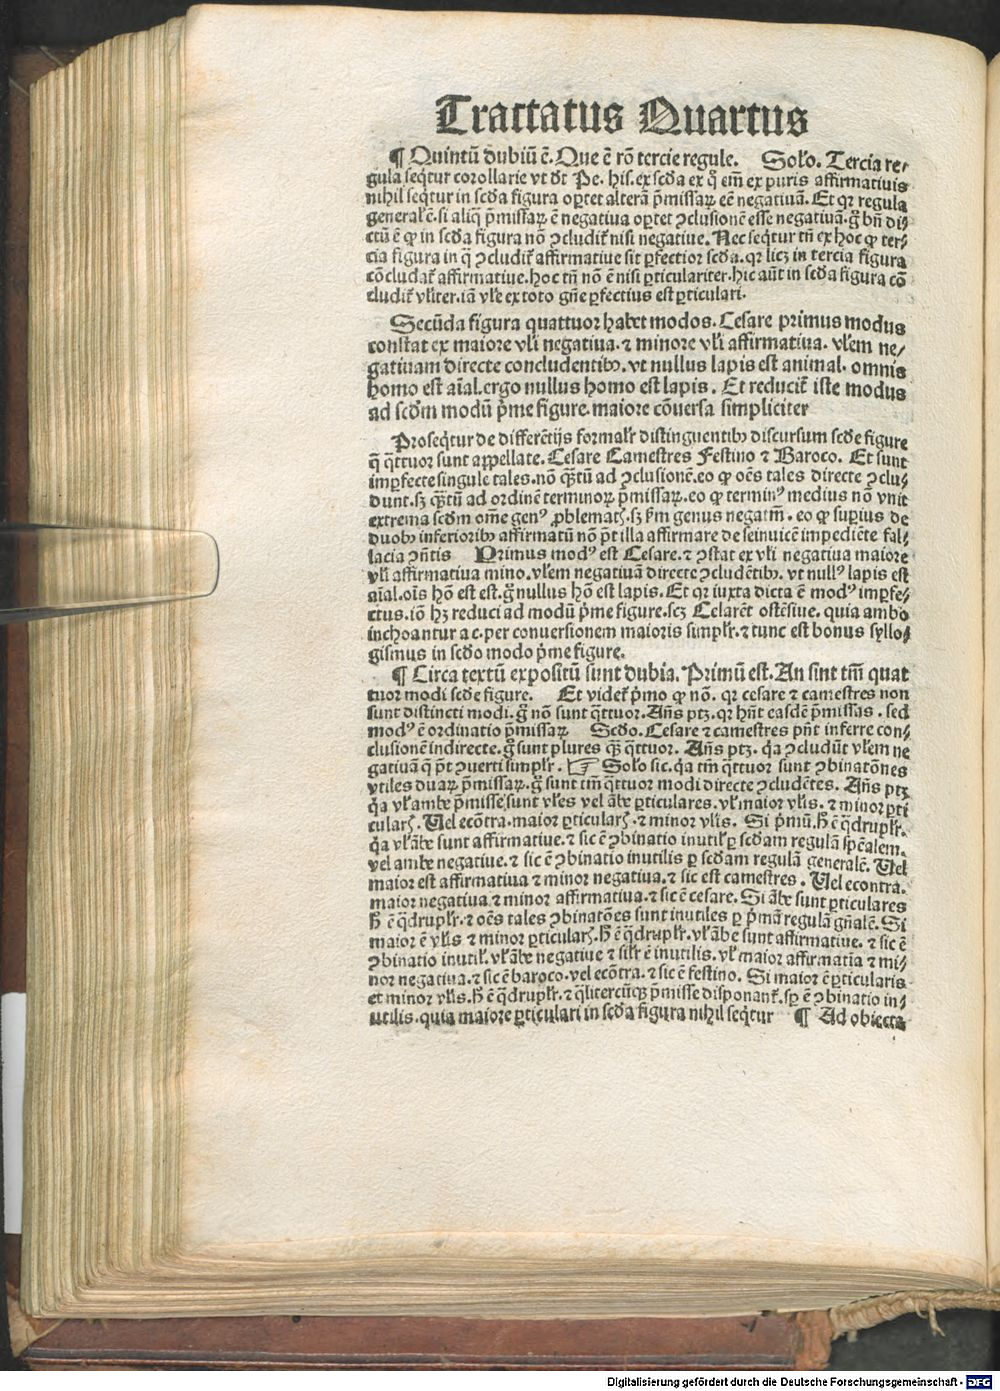 Tractatus Quartus
¶ Quintū dubiū ē. Que ē rō tercie regule. Solo. Tercia re-
gula seqtur corollarie vt dt Pe. his. ex scda ex q̄ em̄ ex puris affirmatiuis
nihil seqtur in scda figura oꝑtet alterā p̄missaꝝ eē negatiuā. Et qꝛ regula
general'ē. si aliq̄ p̄missaꝝ ē negatiua oꝑtet ꝯclusionē esse negatiuā. g̊ bn̄ di-
ctū ē ꝙ in scda figura nō ꝯcludit' nisi negatiue. Nec seqtur tn̄ ex hoc ꝙ ter-
cia figura in q̄ ꝯcludit' affirmatiue sit ꝑfectior scda. qꝛ licꝫ in tercia figura
cōcludat' affirmatiue. hoc tn̄ nō ē nisi ꝑticulariter. hic aūt in scda figura cō
cludit' vl'iter. iā vl'e ex toto gn̄e ꝑfectius est ꝑticulari.
Secūda figura quattuor habet modos. Cesare primus modus
constat ex maiore vl'i negatiua. ⁊ minore vl'i affirmatiua. vl'em ne-
gatiuam directe concludentibꝫ. vt nullus lapis est animal. omnis
homo est aīal. ergo nullus homo est lapis. Et reducit' iste modus
ad scdm modū p̄me figure. maiore cōuersa simpliciter
Proseqtur de differētijs formalr̄ distinguentibꝫ discursum scde figure
q̄ q̄ttuor sunt appellate. Cesare Camestres Festino ⁊ Baroco. Et sunt
imꝑfecte singule tales. nō q̄tū ad ꝯclusionē. eo ꝙ oēs tales directe ꝯclu-
dunt. sꝫ q̄tū ad ordinē terminoꝝ p̄missaꝝ. eo ꝙ terminꝰ medius nō vnit
extrema scdm om̄e genꝰ ꝓblematꝭ. sꝫ km genus negatm̄. eo ꝙ suꝑius de
duobꝫ inferioribꝫ affirmatū nō p̄t illa affirmare de seinuicē impediēte fal-
lacia ꝯn̄tis Primus modꝰ est Cesare. ⁊ ꝯstat ex vl'i negatiua maiore
vl'i affirmatiua mino. vl'em negatiuā directe ꝯcludētibꝫ. vt nullꝰ lapis est
aīal. oīs hō est est. g̊ nullus hō est lapis. Et qꝛ iuxta dicta ē modꝰ imꝑfe-
ctus. iō hꝫ reduci ad modū p̄me figure. scꝫ Celarēt ostēsiue. quia ambo
inchoantur a c. per conuersionem maioris simplr̄. ⁊ tunc est bonus syllo-
gismus in scdo modo p̄me figure.
¶ Circa textū expositū sunt dubia. Primū est. An sint tm̄ quat
tuor modi scde figure. Et videt' p̄mo ꝙ nō. qꝛ cesare ⁊ camestres non
sunt distincti modi. g̊ nō sunt q̄ttuor. Añs ptꝫ. qꝛ hn̄t easdē p̄missas. sed
modꝰ ē ordinatio p̄missaꝝ Scdo. Cesare ⁊ camestres pn̄t inferre con-
clusionē indirecte. g̊ sunt plures q̄ q̄ttuor. Añs ptꝫ. q̄a ꝯcludūt vl'em ne
gatiuā q̄ p̄t ꝯuerti simplr̄. ☞ Solo sic. q̄a tm̄ q̄ttuor sunt ꝯbinatōnes
vtiles duaꝝ p̄missaꝝ. g̊ sunt tm̄ q̄ttuor modi directe ꝯcludētes. Añs ptꝫ
q̄a vl' ambe p̄misse sunt vl'es vel ābe ꝑticulares. vl' maior vl'is. ⁊ minor ꝑti
cularꝭ. Uel ecōtra. maior ꝑticularꝭ. ⁊ minor vl'is. Si p̄mū. H̄ ē q̄druplr̄.
q̄a vl' ābe sunt affirmatiue. ⁊ sic ē ꝯbinatio inutil' ꝑ scdam regulā spēalem.
vel ambe negatiue. ⁊ sic ē ꝯbinatio inutilis ꝑ scdam regulā generalē. Uel
maior est affirmatiua ⁊ minor negatiua. ⁊ sic est camestres. Uel econtra.
maior negatiua ⁊ minor affirmatiua. ⁊ sic ē cesare. Si ābe sunt ꝑticulares
H̄ ē q̄druplr̄. ⁊ oēs tales ꝯbinatōes sunt inutiles ꝑ p̄mā regulā gn̄alē. Si
maior ē vl'is ⁊ minor ꝑticularꝭ. H̄ ē q̄druplr̄. vl' ābe sunt affirmatiue. ⁊ sic ē
ꝯbinatio inutil'. vl' ābe negatiue ⁊ silr̄ ē inutilis. vl' maior affirmatīa ⁊ mi-
nor negatiua. ⁊ sic ē baroco. vel ecōtra. ⁊ sic ē festino. Si maior ē ꝑticularis
et minor vl'is. H̄ ē q̄druplr̄. ⁊ q̄litercūqꝫ p̄misse disponant'. sꝑ ē ꝯbinatio in-
utilis. quia maiore ꝑticulari in scda figura nihil seqtur ¶ Ad obiecta
Digitalisierung gefördert durch die Deutsche Forschungsgemeinschaft - DFG